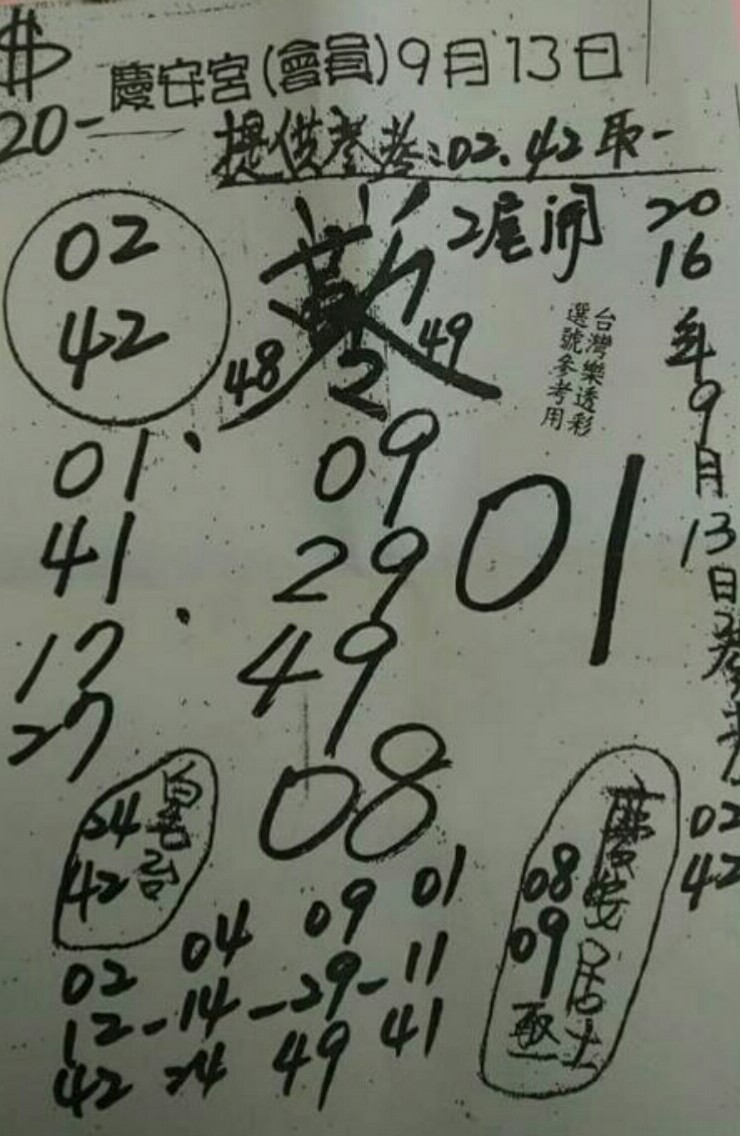 $
慶安宮(會員)9月13日
20-
提供參考:02.42取一
02
42
2尾開
48 2 49
台灣樂透彩
選號參考用
2016年9月13日參考
02
42
01
41
17
27
09
29
49
01
08
24
42
慶安居士
08
09
取一
02 04 09 01
12-14-29-11
42 24 49 41